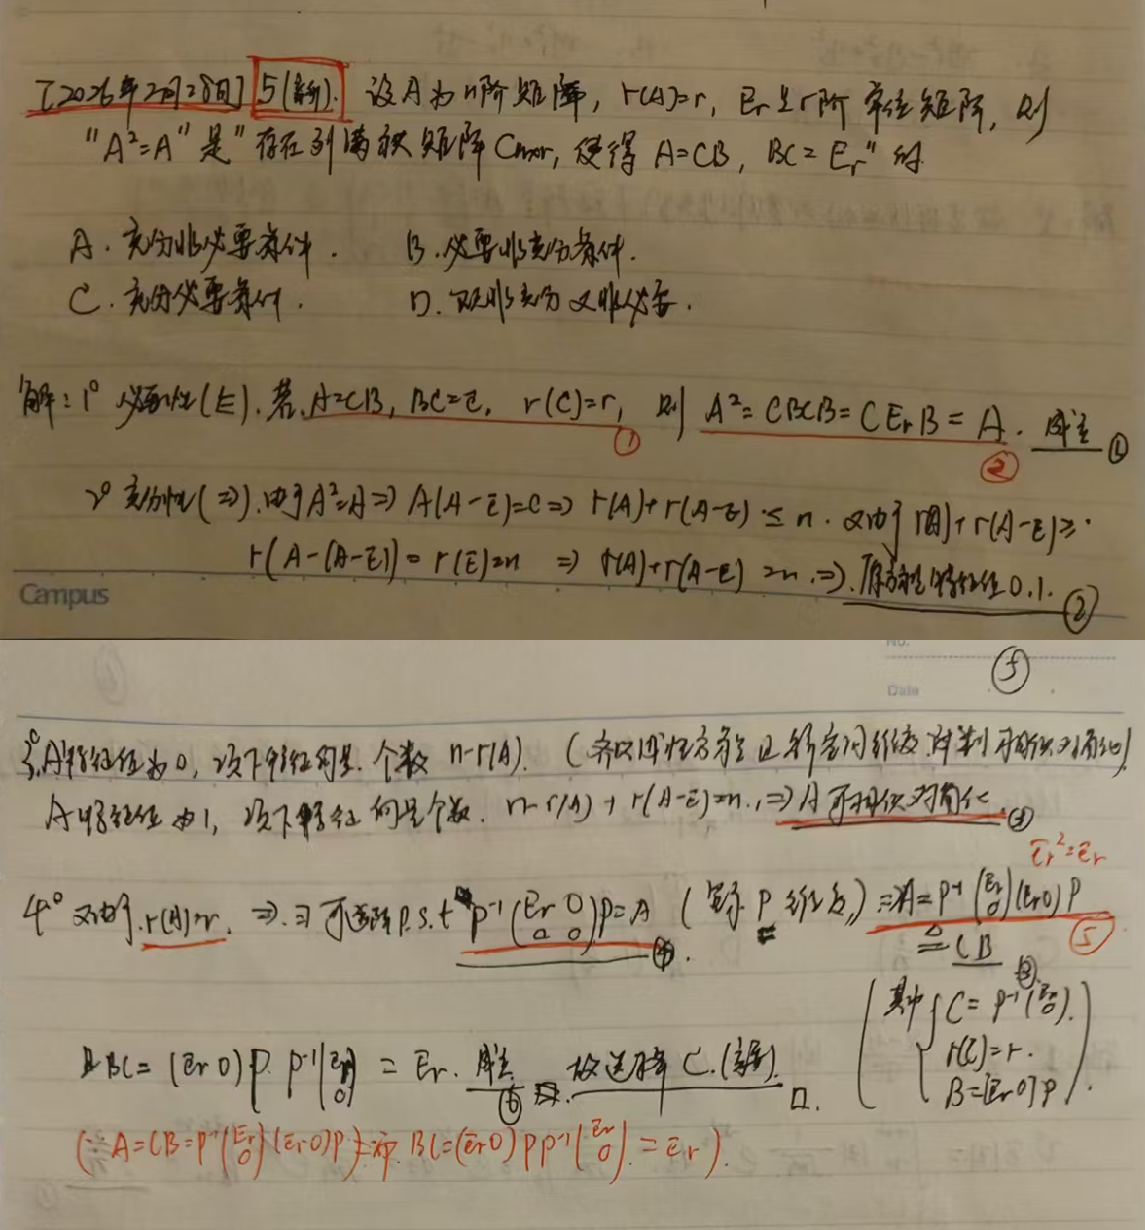 [2026年2月28日] 5(新). 设A为n阶矩阵, r(A)=r, Er是r阶单位矩阵, 则
"A²=A"是"存在列满秩矩阵Cn×r, 使得 A=CB, BC=Er"的
A. 充分非必要条件. B. 必要非充分条件.
C. 充分必要条件. D. 既非充分又非必要.
解: 1° 必要性(⇐). 若A=CB, BC=E, r(C)=r, 则 A²=CBCB=CErB=A. 成立 ①
① ②
2° 充分性(⇒). 由于A²=A⇒A(A-E)=0⇒ r(A)+r(A-E)≤n. 又由于r(A)+r(A-E)≥
r(A-(A-E))=r(E)=n ⇒ r(A)+r(A-E)=n.⇒. 特征值0.1. ②
Campus
No.
Date
3° A特征值为0, 项下特征向量个数 n-r(A). (齐次线性方程
A特征值为1, 项下特征向量个数. n-r(A)+r(A-E)=n.⇒A可相似对角化 ③
Er²=Er
4° 又由于r(A)=r. ⇒.∃可逆阵P.s.t P⁻¹(Er 0 0 0)P=A ④ ⇒A=P⁻¹(Er 0)(Er 0)P
≜CB ⑤
其中 C=P⁻¹(Er 0).
r(C)=r.
B=(Er 0)P
且BC=(Er 0)P P⁻¹(Er 0)=Er. 成立 ⑥ 故选择C. □.
(∵A=CB=P⁻¹(Er 0)(Er 0)P BC=(Er 0)PP⁻¹(Er 0).=Er).